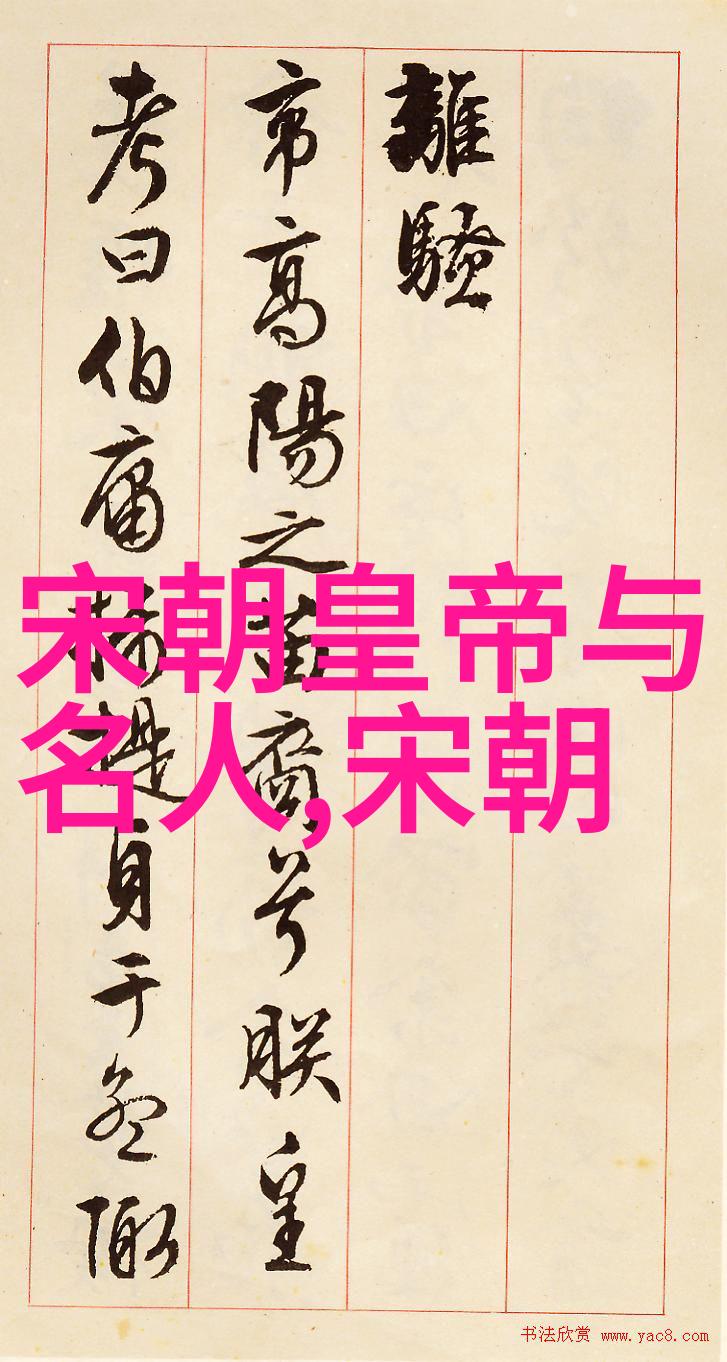 離騷
帝高陽之苗裔兮朕皇
考曰伯庸提貞于孟陬
宋朝皇帝与
名人,宋朝
书法欣赏 www.yac8.com